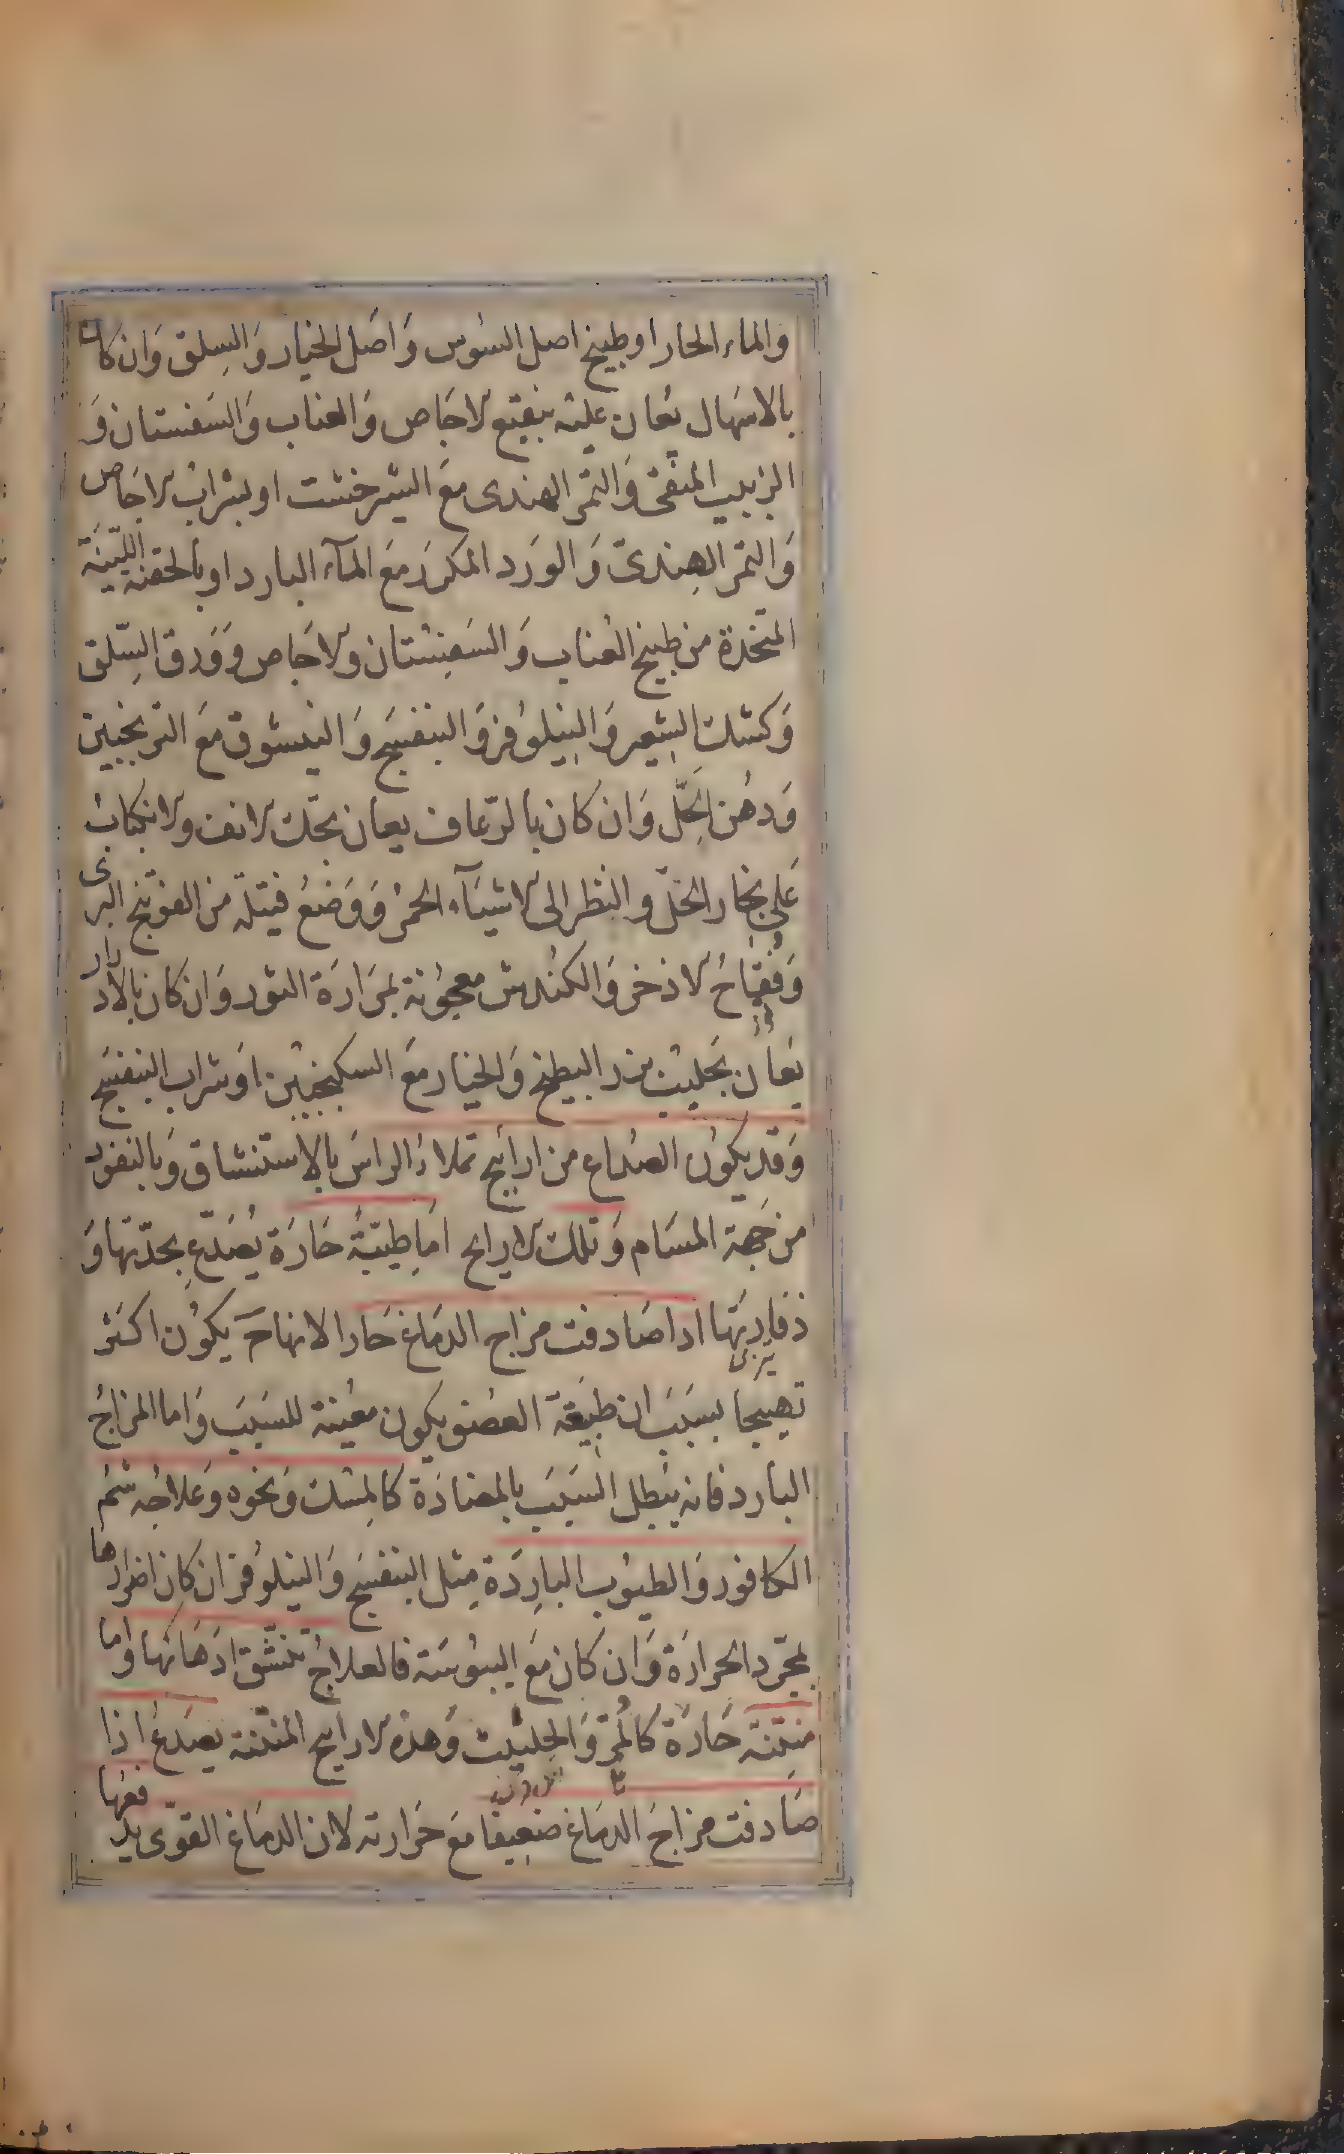 والماء الحار او طبيخ اصل السُوس وَاصَل الخيار وَالسِلق وَان كان
بالاسهَال يُعان عليْه بنقيع الاجَاص وَالعناب وَالسَفستان وَ
الزبيب المنقى وَالتمر الهندى مَعَ الشيرخشت او بشراب الاجَاص
وَالتمر الهِندىّ وَالورَد المكرَر مَعَ المآء البارد او بالحقنه الليّنَة
المتخذة من طبيخ العُناب وَالسَفِستان والاجَاص وَوَرق السّلق
وَكشك الشعير وَالنيلوُفر وَالبنفسَج وَالبنسُوق مَعَ الترنجبين
وَدهُن الحَلّ وَان كان بالرّعاف يعان بحّك الانف والانكباب
عَلى بخار الخَلّ والنظر الى الاشيَآء الحُمرُ وَوَضعُ فتيلة من الفوتنج البرى
وَفقاحُ الاذخر وَالكندش معجوُنة بمرَارَة الثور وَان كان بالادرار
يعَان بحليبْ بزر البطيخ وَالخيار مَعَ السكنجبين اوَ شراب البنفسَج
وَقد يكوُن الصُداع من ارايح تملاءُ الراسَ بالاستنشاق وَبالنفوذ
من جَهة المسَام وَتلك الارايح امَا طيبَةُ حَارَة يُصَدّعِ بحدّتهَا وَ
ذفاريتهَا اذا صَادفت مزاج الدمَاغ حَارا لانهاحَ يكوُن اكثر
تهييجا بسَبَب ان طبيَعَة العضو يكون معُينة للسَبَبَ وَاما المزاجُ
البارد فانه يبُطل السَبَبَ بالمضادَة كالمِسْك وَنحوه وَعلاجُه شمُ
الكافور وَالطيوُب البارِدَة مِثل البنفسَج وَالنيلوُفر ان كان اضرارها
بمجّرد الحرارَة وَان كان مَعَ اليبوُسَة فالعلاجُ تنَشّق ادَهَانها واما
منِتنَة حَارَة كالُمرّ وَالحِلتيْت وَهذه الارايح المنتنة يصَدعُ اذا
صَادفت مزاجَ الدّمَاغ ضَعيفا مَعَ حَرارته لان الدمَاغ القوّى يدفعها